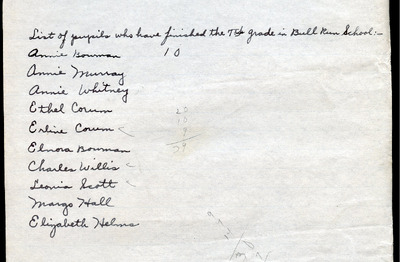 List of pupils who have finished the 7th grade in Bull Run School:-
Annie Bowman 10
Annie Murray
Annie Whitney
Ethel Corum
Erline Corum
Elnora Bowman
Charles Willis
Leonia Scott
Margo Hall
Elizabeth Helms
20
10
9
39